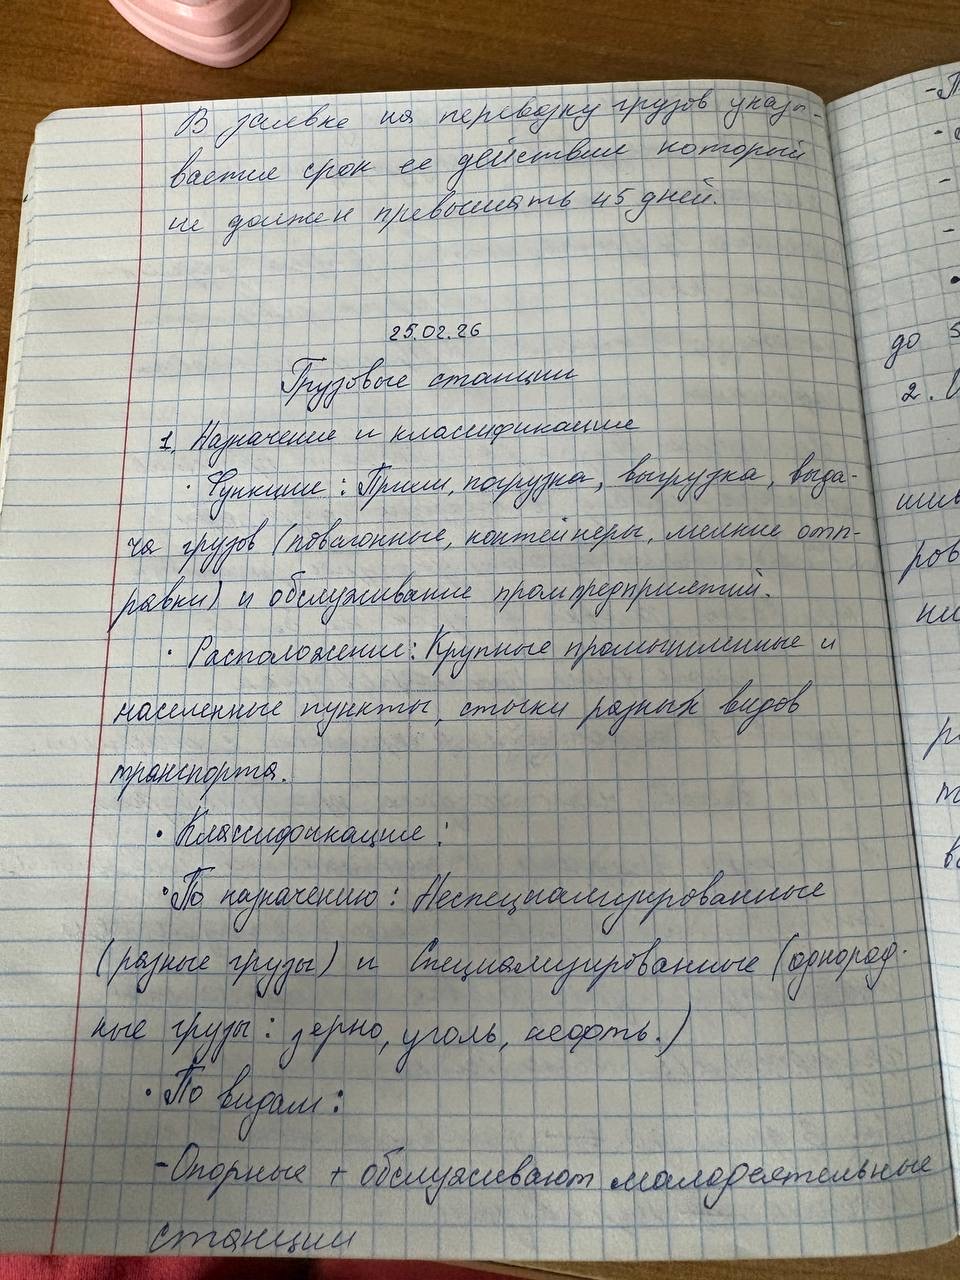 В заявке на перевозку грузов указы-
вается срок ее действия который
не должен превышать 45 дней.
25.02.26
Грузовые станции
1. Назначение и классификация
· Функции: Прием, погрузка, выгрузка, выда-
ча грузов (повагонные, контейнеры, мелкие отп-
равки) и обслуживание промпредприятий.
· Расположение: Крупные промышленные и
населенные пункты, стыки разных видов
транспорта.
· Классификация:
· По назначению: Неспециализированные
(разные грузы) и Специализированные (однород-
ные грузы: зерно, уголь, нефть.)
· По видам:
- Опорные + обслуживают малодеятельные
станции
до 5
2.
шив
ров